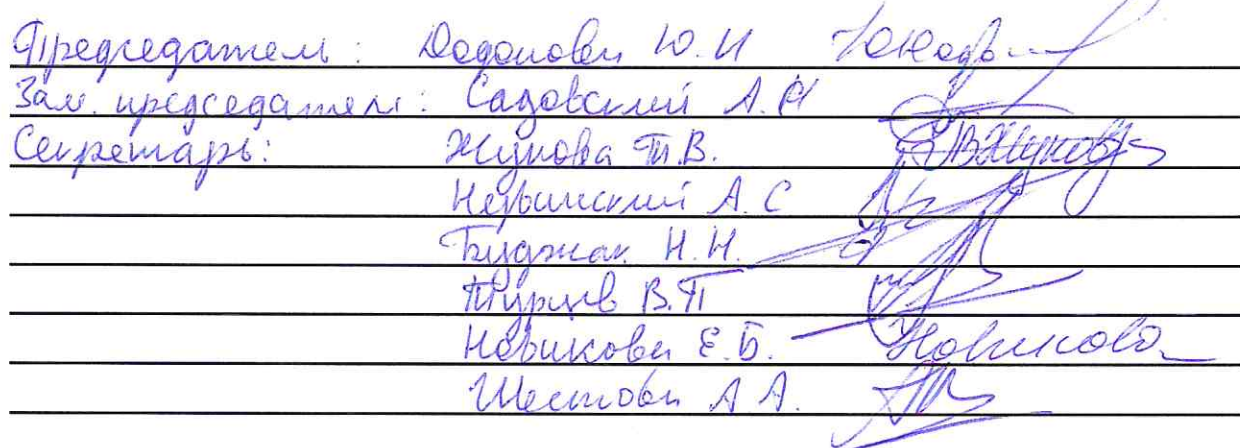 Председатель: Додонова Ю.И
Зам. председателя: Садовский А.И
Секретарь: Жукова Т.В. ТВЖукова
Невинский А.С
Буджак Н.Н.
Турцев В.П
Новикова Е.Б. Новикова
Шестова А А.